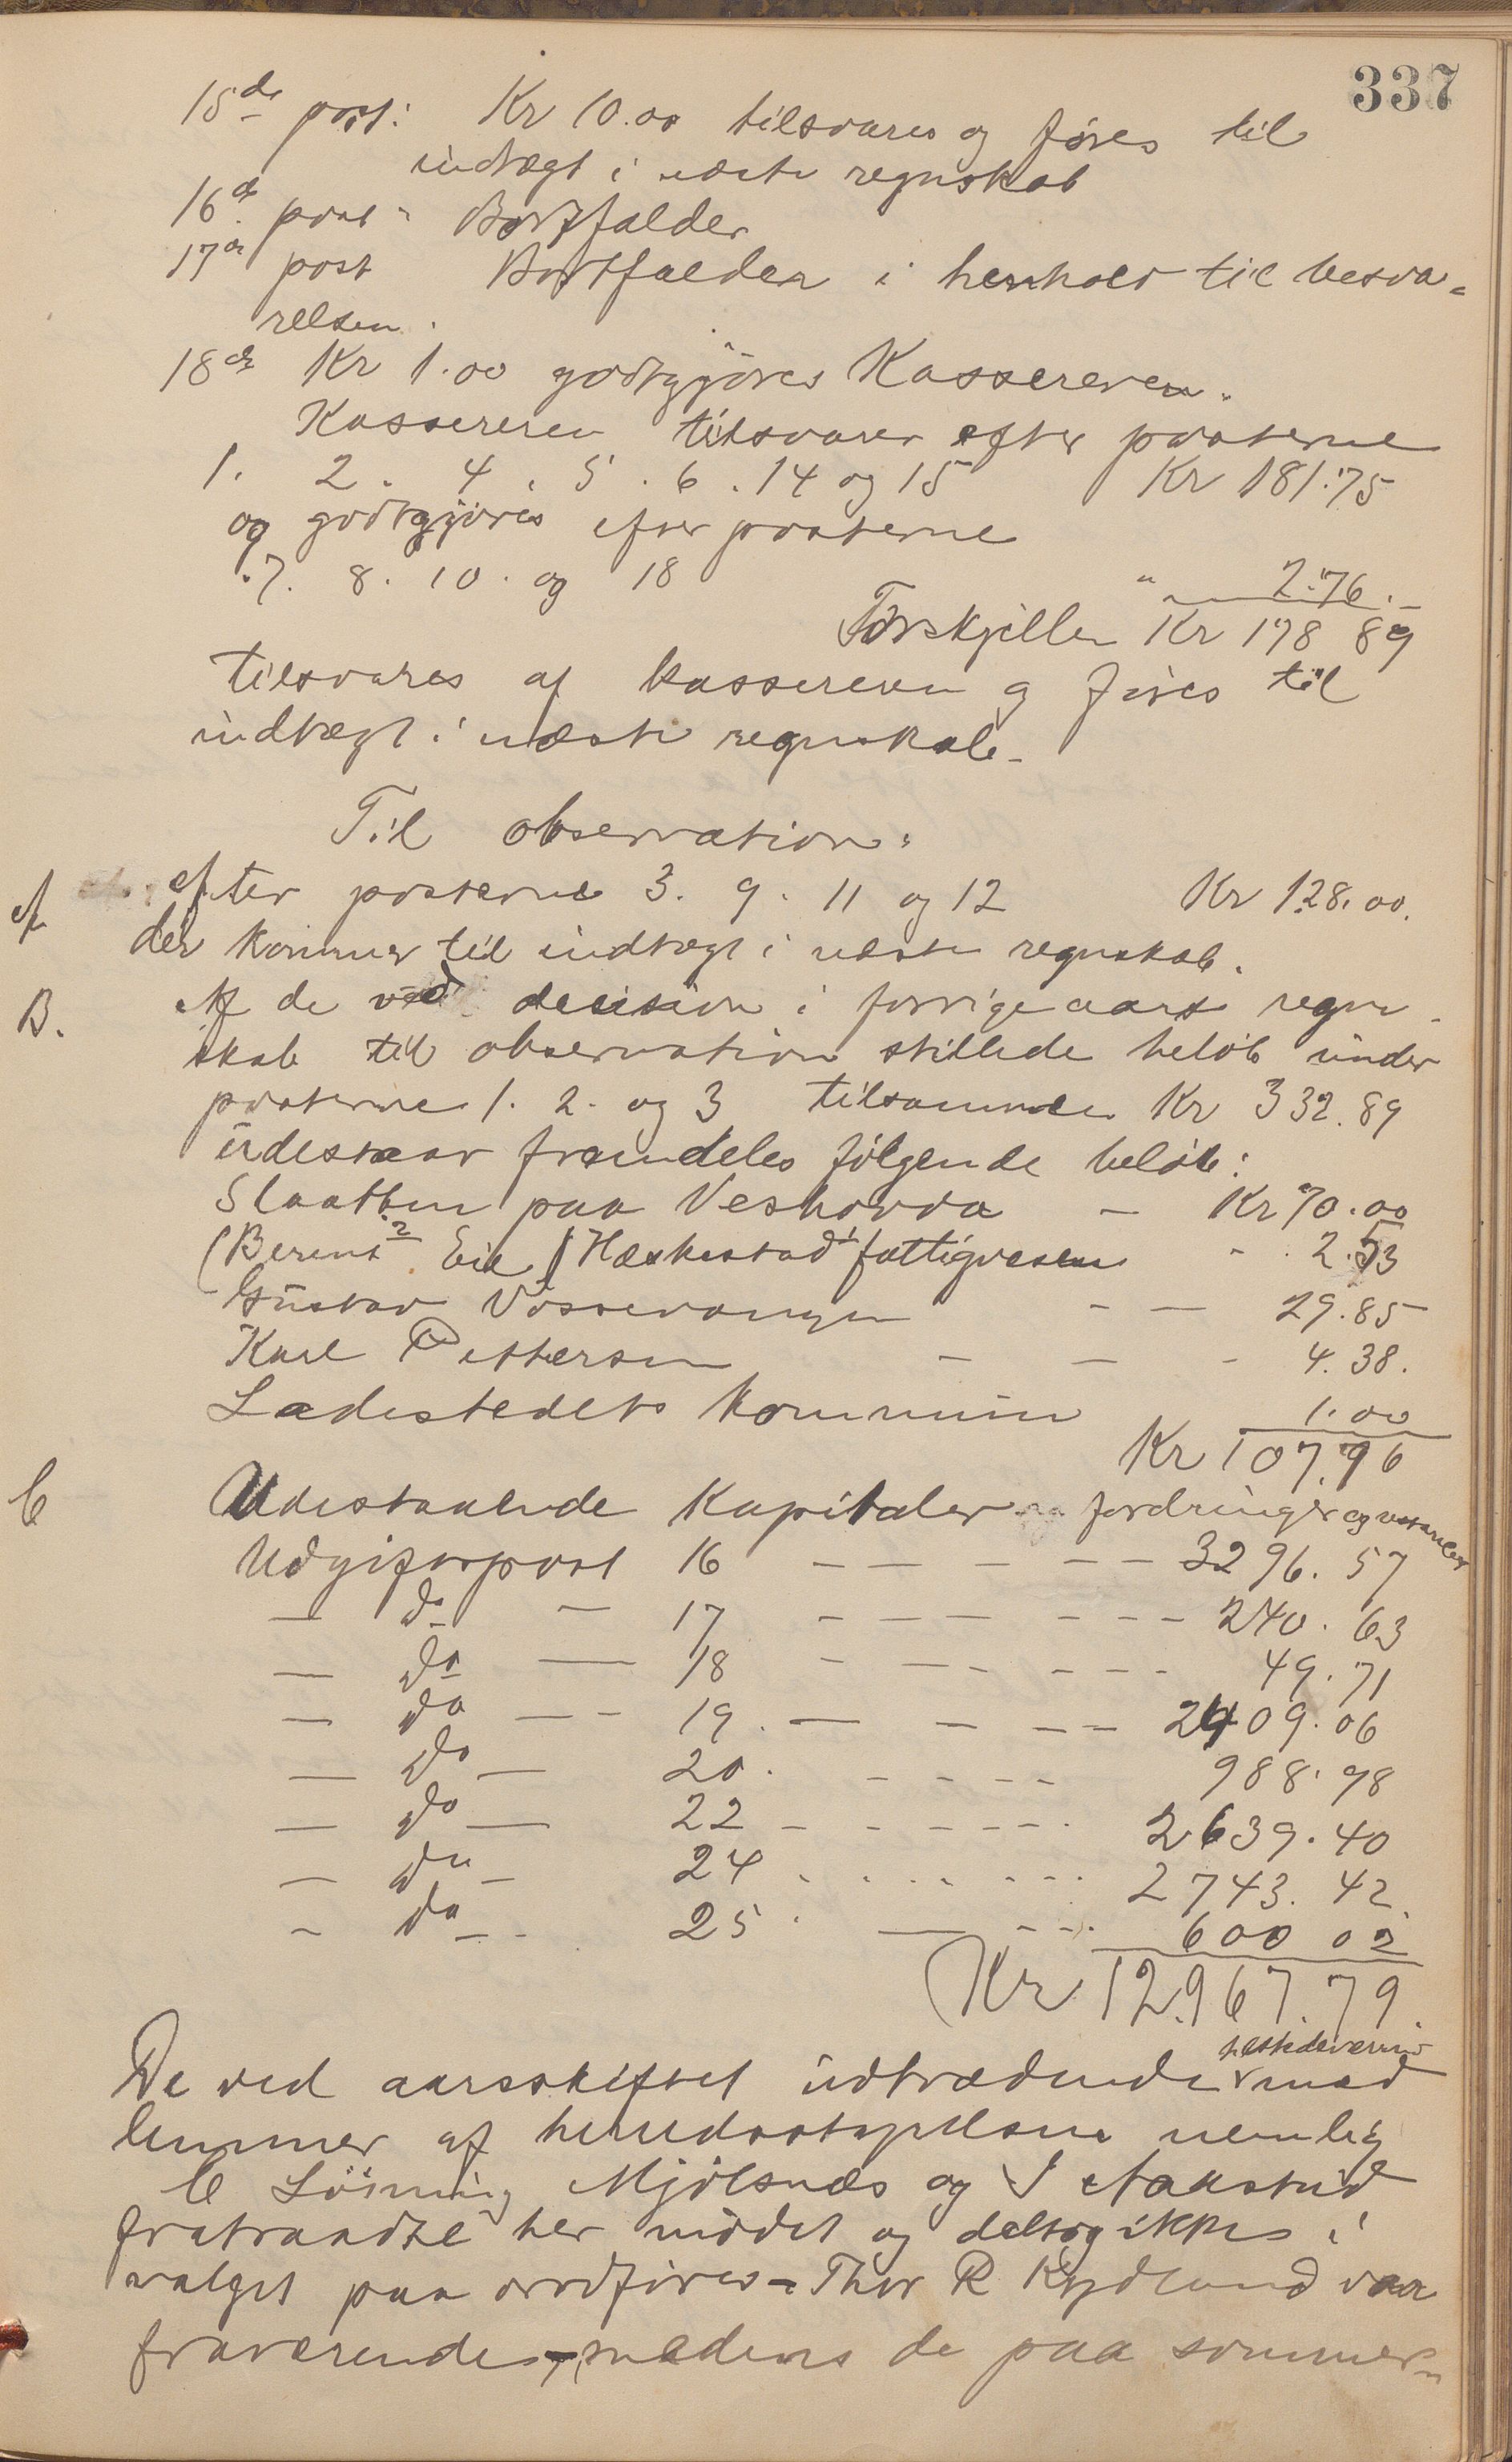 337
15de post: Kr 10.00 tilsvares og föres til
indtægt i næste regnskab
16de post " Bortfalder
17de post Bortfalder i henhold til besva=
relsen.
18de Kr 1.00 godtgjöres Kassereren.
Kassereren tilsvarer efter posterne
1. 2. 4. 5. 6. 14 og 15 Kr 181.75
og godtgjöres efter posterne
7. 8. 10. og 18 " 2.76.
Forskjellen Kr 178 89
tilsvares af kassereren og föres til
indtægt i næste regnskab.
Til observation:
A. efter posterne 3. 9. 11 og 12 Kr 128.00.
der kommer til indtægt i næste regnskab.
B. Af de ved decision i forrige aars regn-
skab til observation stillede belöb under
posterne 1. 2. og 3 tilsammen Kr 332.89
udestaar fremdeles fölgende belöb:
Slaatten paa Veshovda - Kr 70.00
(Berent Eie) Heskestad fattigvesen - 2.53
Gustav Vossevangen - - 29.85
Karl Pettersen - - - 4.38.
Ladestedets kommune 1.00
Kr 107.96
C Udestaaende Kapitaler fordringer og
Udgiftspost 16 - - - - - 3296.57
- do - 17 - - - - - - 240.63
- do - 18 - - - - - - 49.71
- do - - 19. - - - - 2409.06
- do - 20. - - - - 988.98
- do - 22 - - - - - - 2639.40
- do - 24 . . . . - - - 2743.42.
- do - - 25 . - - - 600 02
Kr 12.967.79.
tilstedeværende
De ved aarsskiftet udtrædende med
lemmer af herredsstyrelsen nemlig
C Löining Mjölsnes og
fratraadte her mödet og deltog ikke i
valget paa ordförer - Thor R Rydland var
fraværende, - medens de paa sommer-